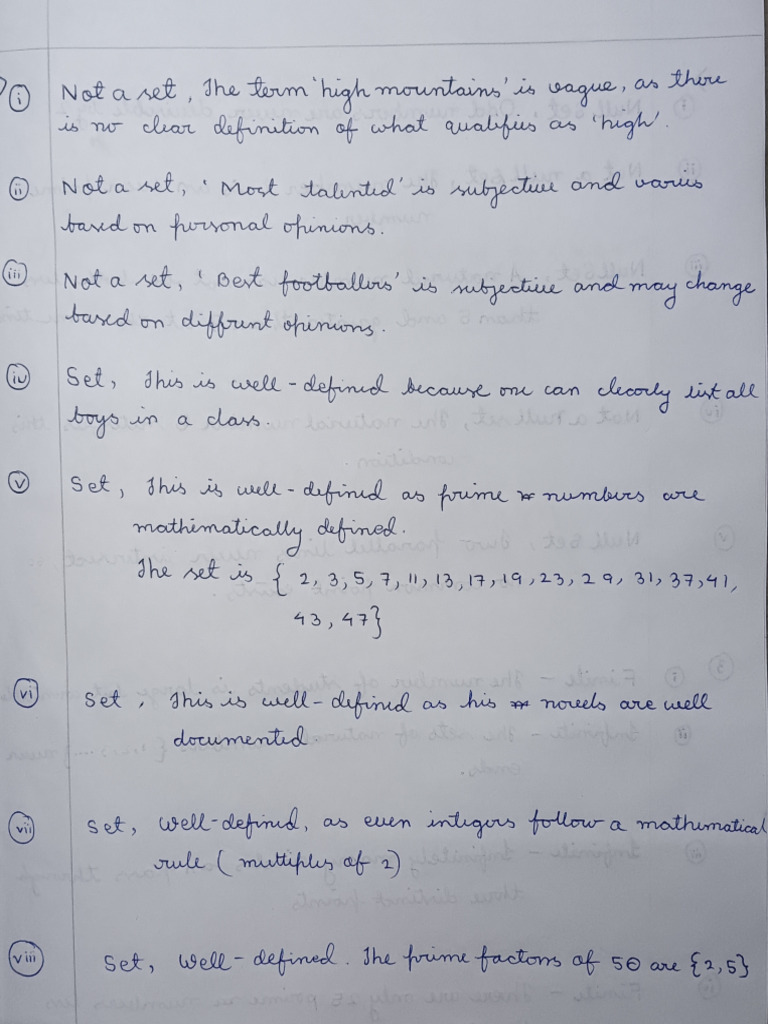 i Not a set, The term 'high mountains' is vague, as there
is no clear definition of what qualifies as 'high'.
ii Not a set, 'Most talented' is subjective and varies
based on personal opinions.
iii Not a set, 'Best footballers' is subjective and may change
based on different opinions.
iv Set, This is well-defined because one can clearly list all
boys in a class.
v Set, This is well-defined as prime numbers are
mathematically defined.
The set is { 2, 3, 5, 7, 11, 13, 17, 19, 23, 29, 31, 37, 41,
43, 47}
vi Set, This is well-defined as his novels are well
documented.
vii Set, Well-defined, as even integers follow a mathematical
rule (multiples of 2)
viii Set, Well-defined. The prime factors of 50 are {2,5}